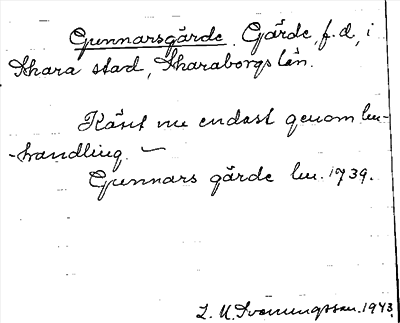 Gunnarsgärde. Gärde, f.d., i
Skara stad, Skaraborgs län.
Känt nu endast genom lm-
-handling. —
Gunnars gärde lm. 1739.
1943